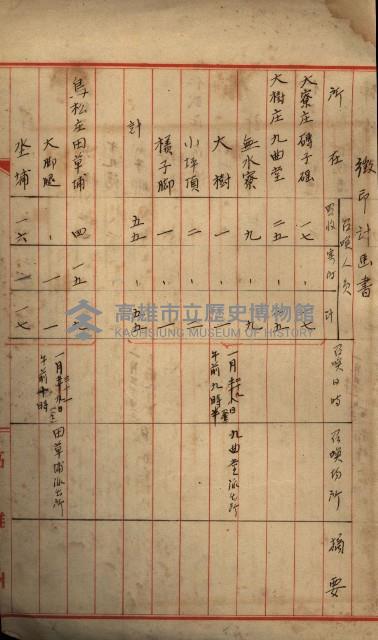 徵印計画書
所在
召喚人員
買收
計
召喚日時
召喚場所
摘要
大寮庄磚子磘 一七 、 一七
大樹庄九曲堂 二五 、 二五 一月 九曲堂派出所
無水寮 九 、 九 午前九時半
大樹 一 、 一
小坪頂 二 、 二
檨子脚 一 、 一
計 五五 、 五五
鳥松庄田草埔 四 一五 一九 一月 田草埔派出所
大脚腿 、 一 一 午前十時
坔埔 一六 一 一七
高雄市立歷史博物館
KAOHSIUNG MUSEUM OF HISTORY
高雄州